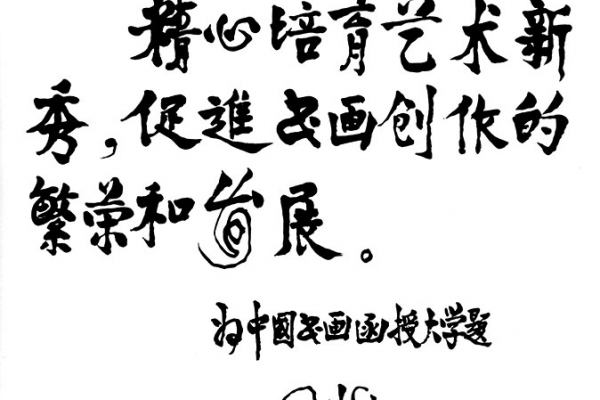 精心培育艺术新
秀,促進书画创作的
繁荣和展。
为中國书画函授大学题